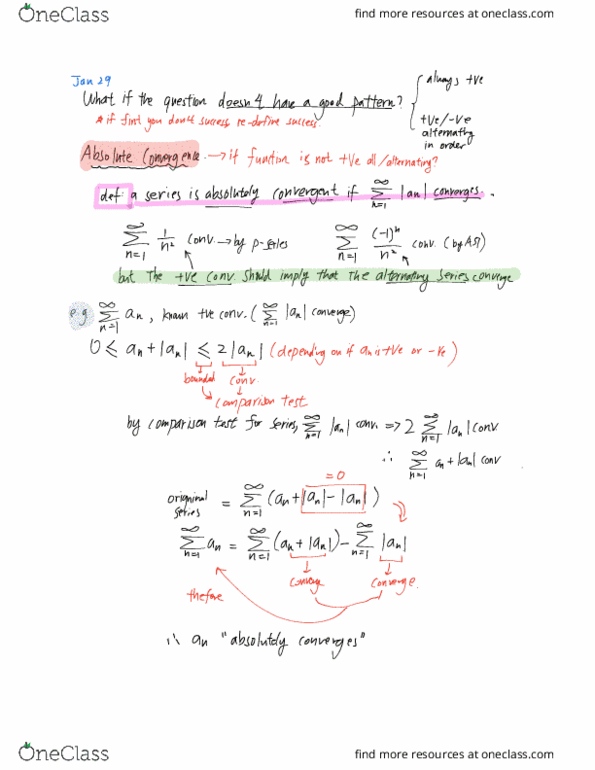 OneClass
find more resources at oneclass.com
Jan 29
What if the question doesn't have a good pattern? { always +ve
+ve/-ve alternating in order
* if first you don't success, re-define success.
Absolute Convergence → if function is not +ve all/alternating?
def: a series is absolutely convergent if ∞ Σ n=1 |an| converges.
∞ Σ n=1 1/n² conv. → by p-series
∞ Σ n=1 (-1)ⁿ/n² conv. (by AST)
but The +ve conv. should imply that the alternating series converge
e.g ∞ Σ n=1 an, known +ve conv. (∞ Σ n=1 |an| converge)
0 ≤ an + |an| ≤ 2|an| (depending on if an is +ve or -ve)
bounded conv.
→ comparison test
by comparison test for series, ∞ Σ n=1 |an| conv. => 2 ∞ Σ n=1 |an| conv
∴ ∞ Σ n=1 an + |an| conv
= 0
originial series = ∞ Σ n=1 (an + |an| - |an|)
∞ Σ n=1 an = ∞ Σ n=1 (an + |an|) - ∞ Σ n=1 |an|
converge converge.
thefore
∴ an "absolutely converges"
OneClass
find more resources at oneclass.com